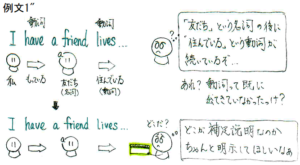 例文1"
動詞 動詞
I have a friend lives...
私 もっている 友だち 住んでいる
(名詞) (動詞)
「友だち」という名詞の後に
「住んでいる」という動詞が
続いているぞ…
あれ？動詞って既に
出てきていなかったっけ？
I have a friend lives...
どこだ？
どこが補足説明なのか
ちゃんと明示してほしいなぁ